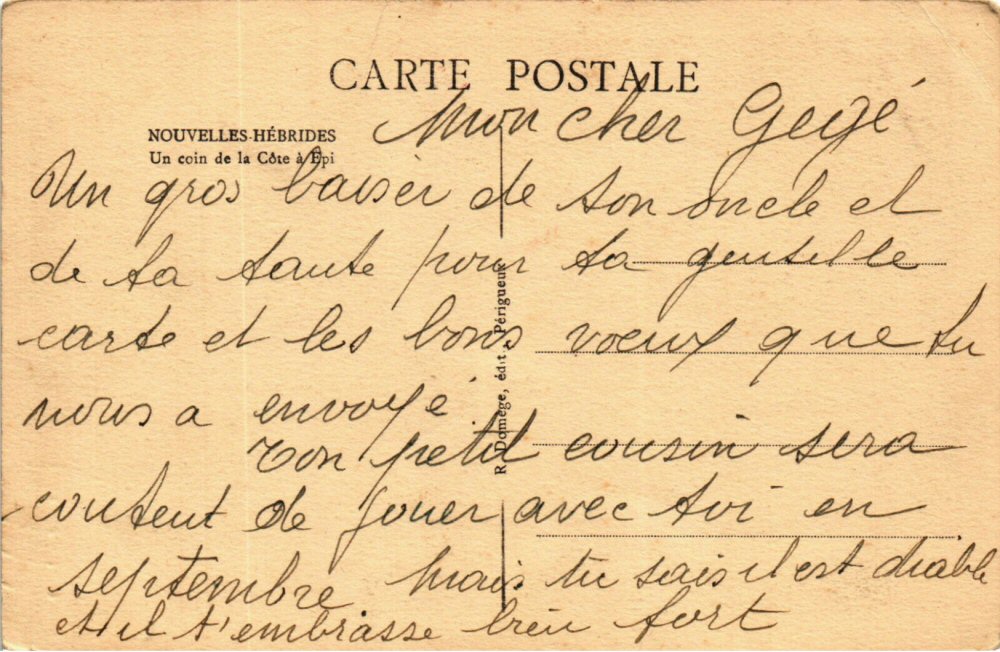 CARTE POSTALE
NOUVELLES-HÉBRIDES
Un coin de la Côte à Épi
R. Domège, édit., Périgueux
Mon cher Gégé
Un gros baiser de ton oncle et
de ta tante pour ta gentille
carte et les bons voeux que tu
nous a envoyé
Ton petit cousin sera
content de jouer avec toi en
septembre mais tu sais il est diable
et il t'embrasse bien fort